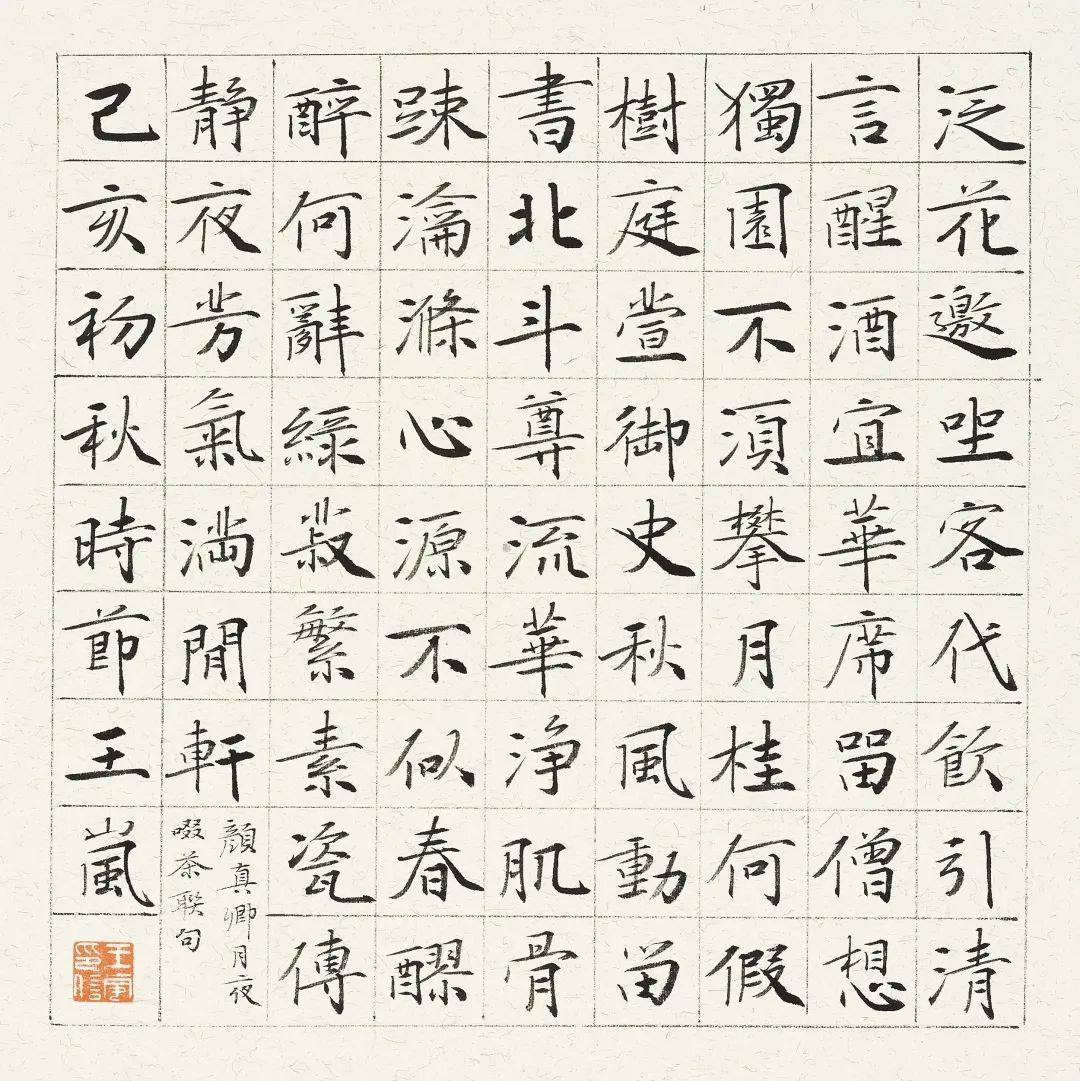 泛花邀坐客代飲引清
言醒酒宜華席留僧想
獨園不須攀月桂何假
樹庭萱御史秋風動尚
書北斗尊流華淨肌骨
踈瀹滌心源不似春醪
醉何辭綠菽繁素瓷傳
靜夜芳氣滿閒軒
顏真卿月夜
啜茶聯句
己亥初秋時節王嵐